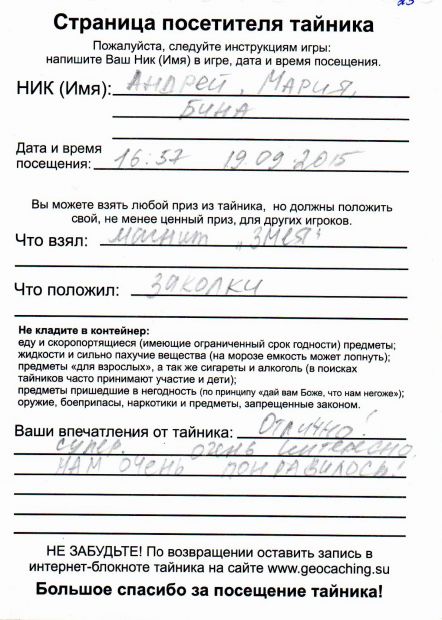 Страница посетителя тайника
Пожалуйста, следуйте инструкциям игры:
напишите Ваш Ник (Имя) в игре, дата и время посещения.
НИК (Имя): Андрей, Мария,
Бина
Дата и время
посещения: 16:57 19.09.2015
Вы можете взять любой приз из тайника, но должны положить
свой, не менее ценный приз, для других игроков.
Что взял: магнит „Змея"
Что положил: заколки
Не кладите в контейнер:
еду и скоропортящиеся (имеющие ограниченный срок годности) предметы;
жидкости и сильно пахучие вещества (на морозе емкость может лопнуть);
предметы «для взрослых», а так же сигареты и алкоголь (в поисках
тайников часто принимают участие и дети);
предметы пришедшие в негодность (по принципу «дай вам Боже, что нам негоже»);
оружие, боеприпасы, наркотики и предметы, запрещенные законом.
Ваши впечатления от тайника: Отлично!
супер. очень интересно.
нам очень понравилось!
НЕ ЗАБУДЬТЕ! По возвращении оставить запись в
интернет-блокноте тайника на сайте www.geocaching.su
Большое спасибо за посещение тайника!